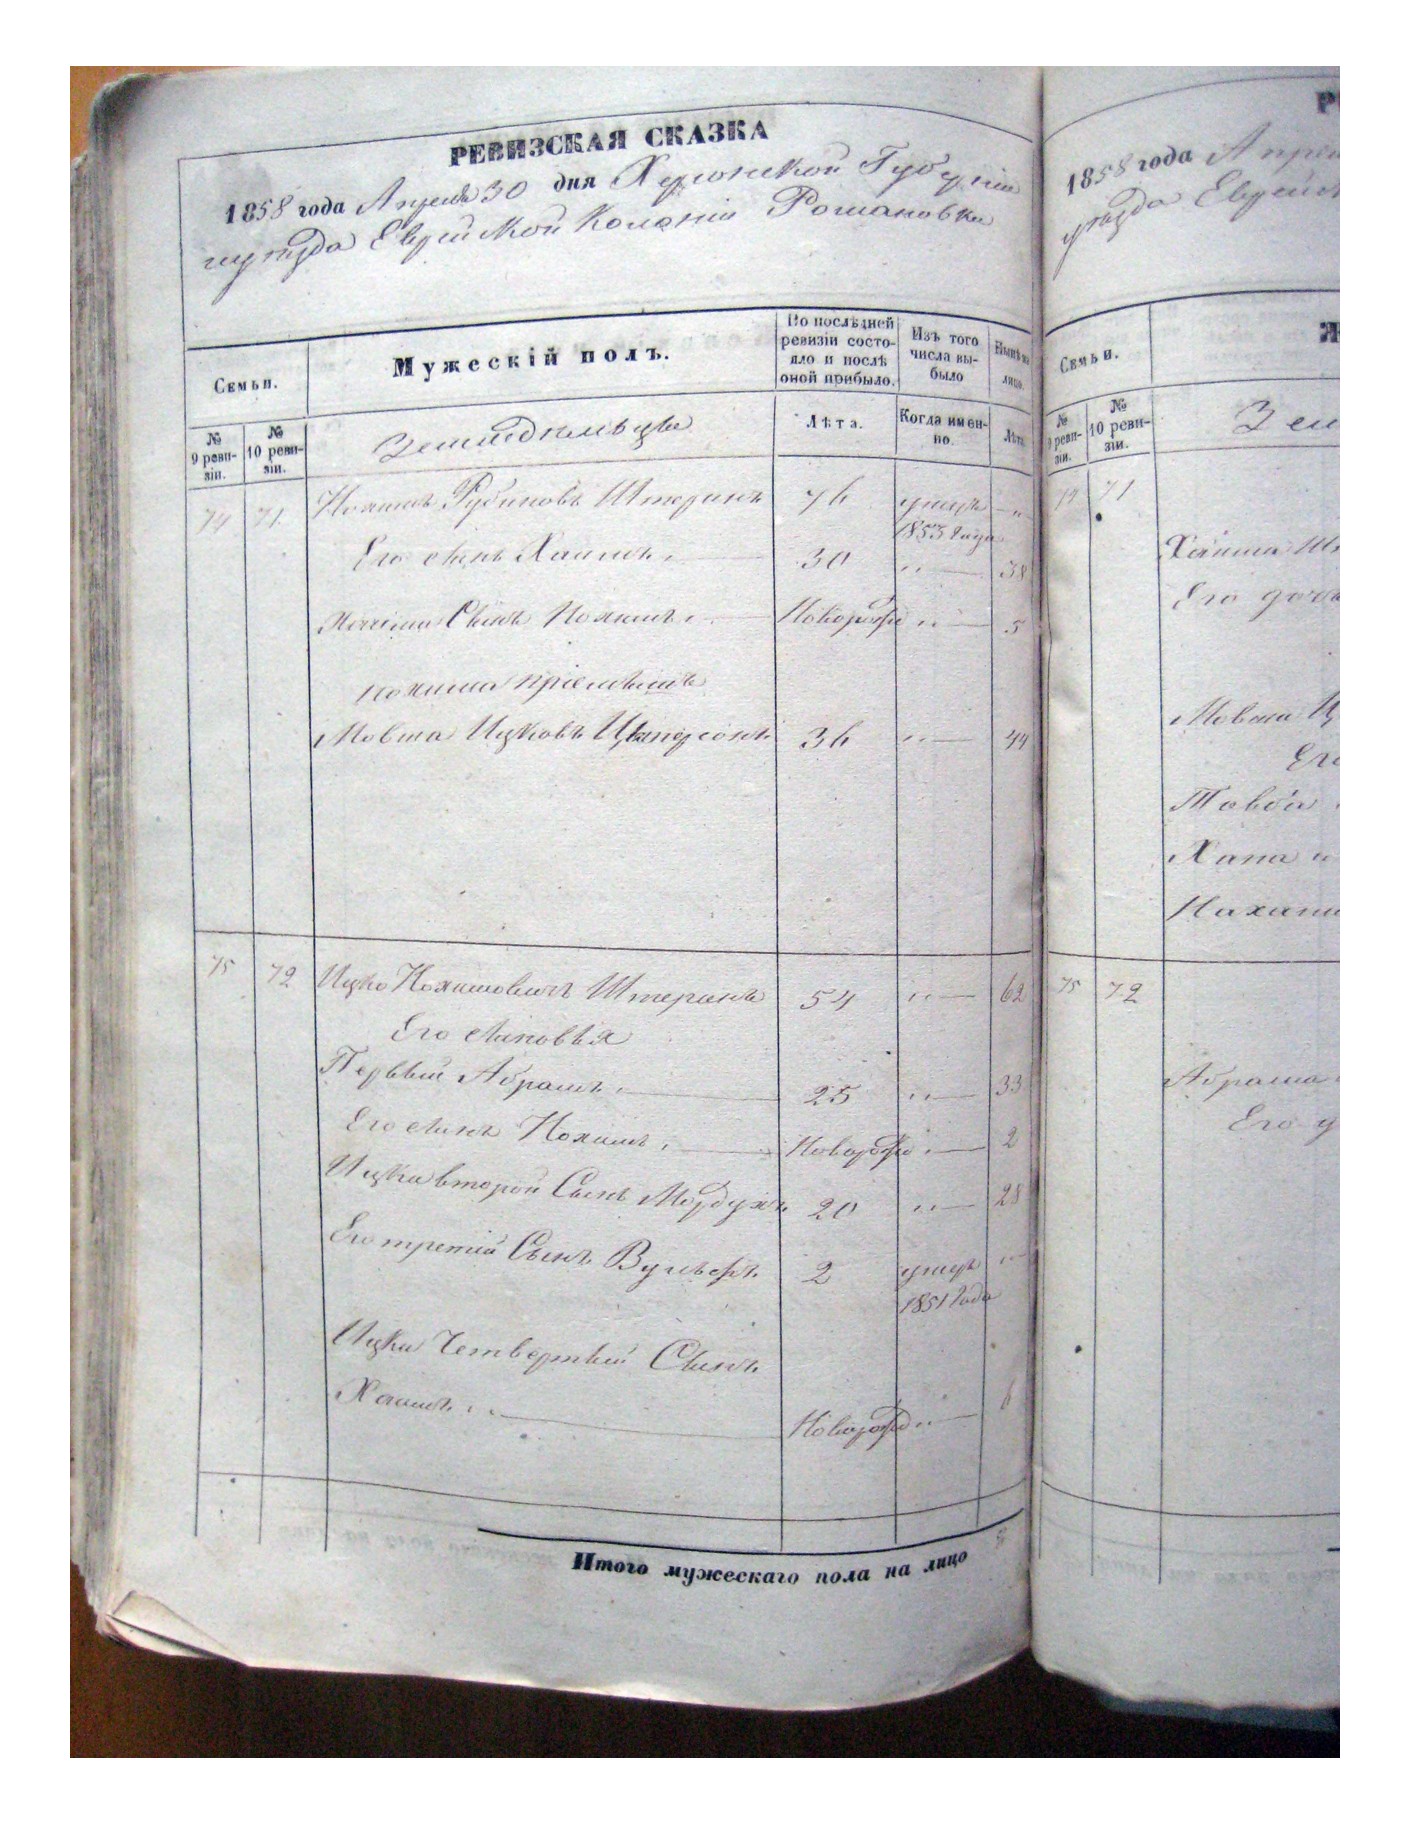 РЕВИЗСКАЯ СКАЗКА
1858 года Апреля 30 дня Херсонской Губерніи
уезда Еврейской Колоніи Романовки
Семьи.
Мужескій полъ.
По послѣдней ревизіи состояло и послѣ оной прибыло.
Изъ того числа выбыло
Нынѣ на лицо.
№ 9 ревизіи.
№ 10 ревизіи.
Земледельцы
Лѣта.
Когда именно.
Лѣта.
74 71 Нохимъ Рубиновъ Штеринъ 76 умеръ „
1853 года
Его сынъ Хаимъ 30 „ 38
Хаима Сынъ Нохимъ Новорожд „ 5
Нохима пріемышъ
Мовша Ицковъ 36 „ 44
75 72 Ицко Нохимовичъ Штеринъ 54 „ 62
Его сыновья
Первый Абрамъ 25 „ 33
Его сынъ Нохимъ Новорожд „ 2
Ицка второй Сынъ Мордухъ 20 „ 28
Его третій Сынъ Вульфъ 2 умеръ „
1851 года
Ицка Четвертый Сынъ
Хаимъ Новорожд „ 6
Итого мужескаго пола на лицо
1858 года
уезда
Семьи.
№ 9 ревизіи.
№ 10 ревизіи.
74 71
Хаима
Его
Мовши
Его
Хана
75 72
Абрама
Его